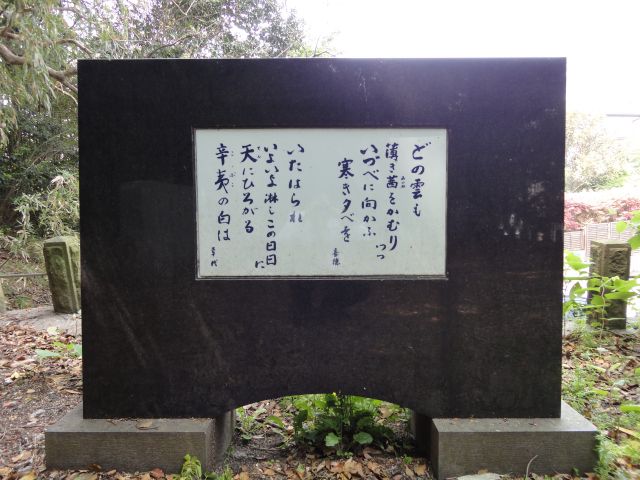 どの雲も
薄き茜をかむりつつ
いづべに向かふ
寒き夕べを
いたはられ
いよいよ淋しこの日日に
天にひろがる
辛夷の白は